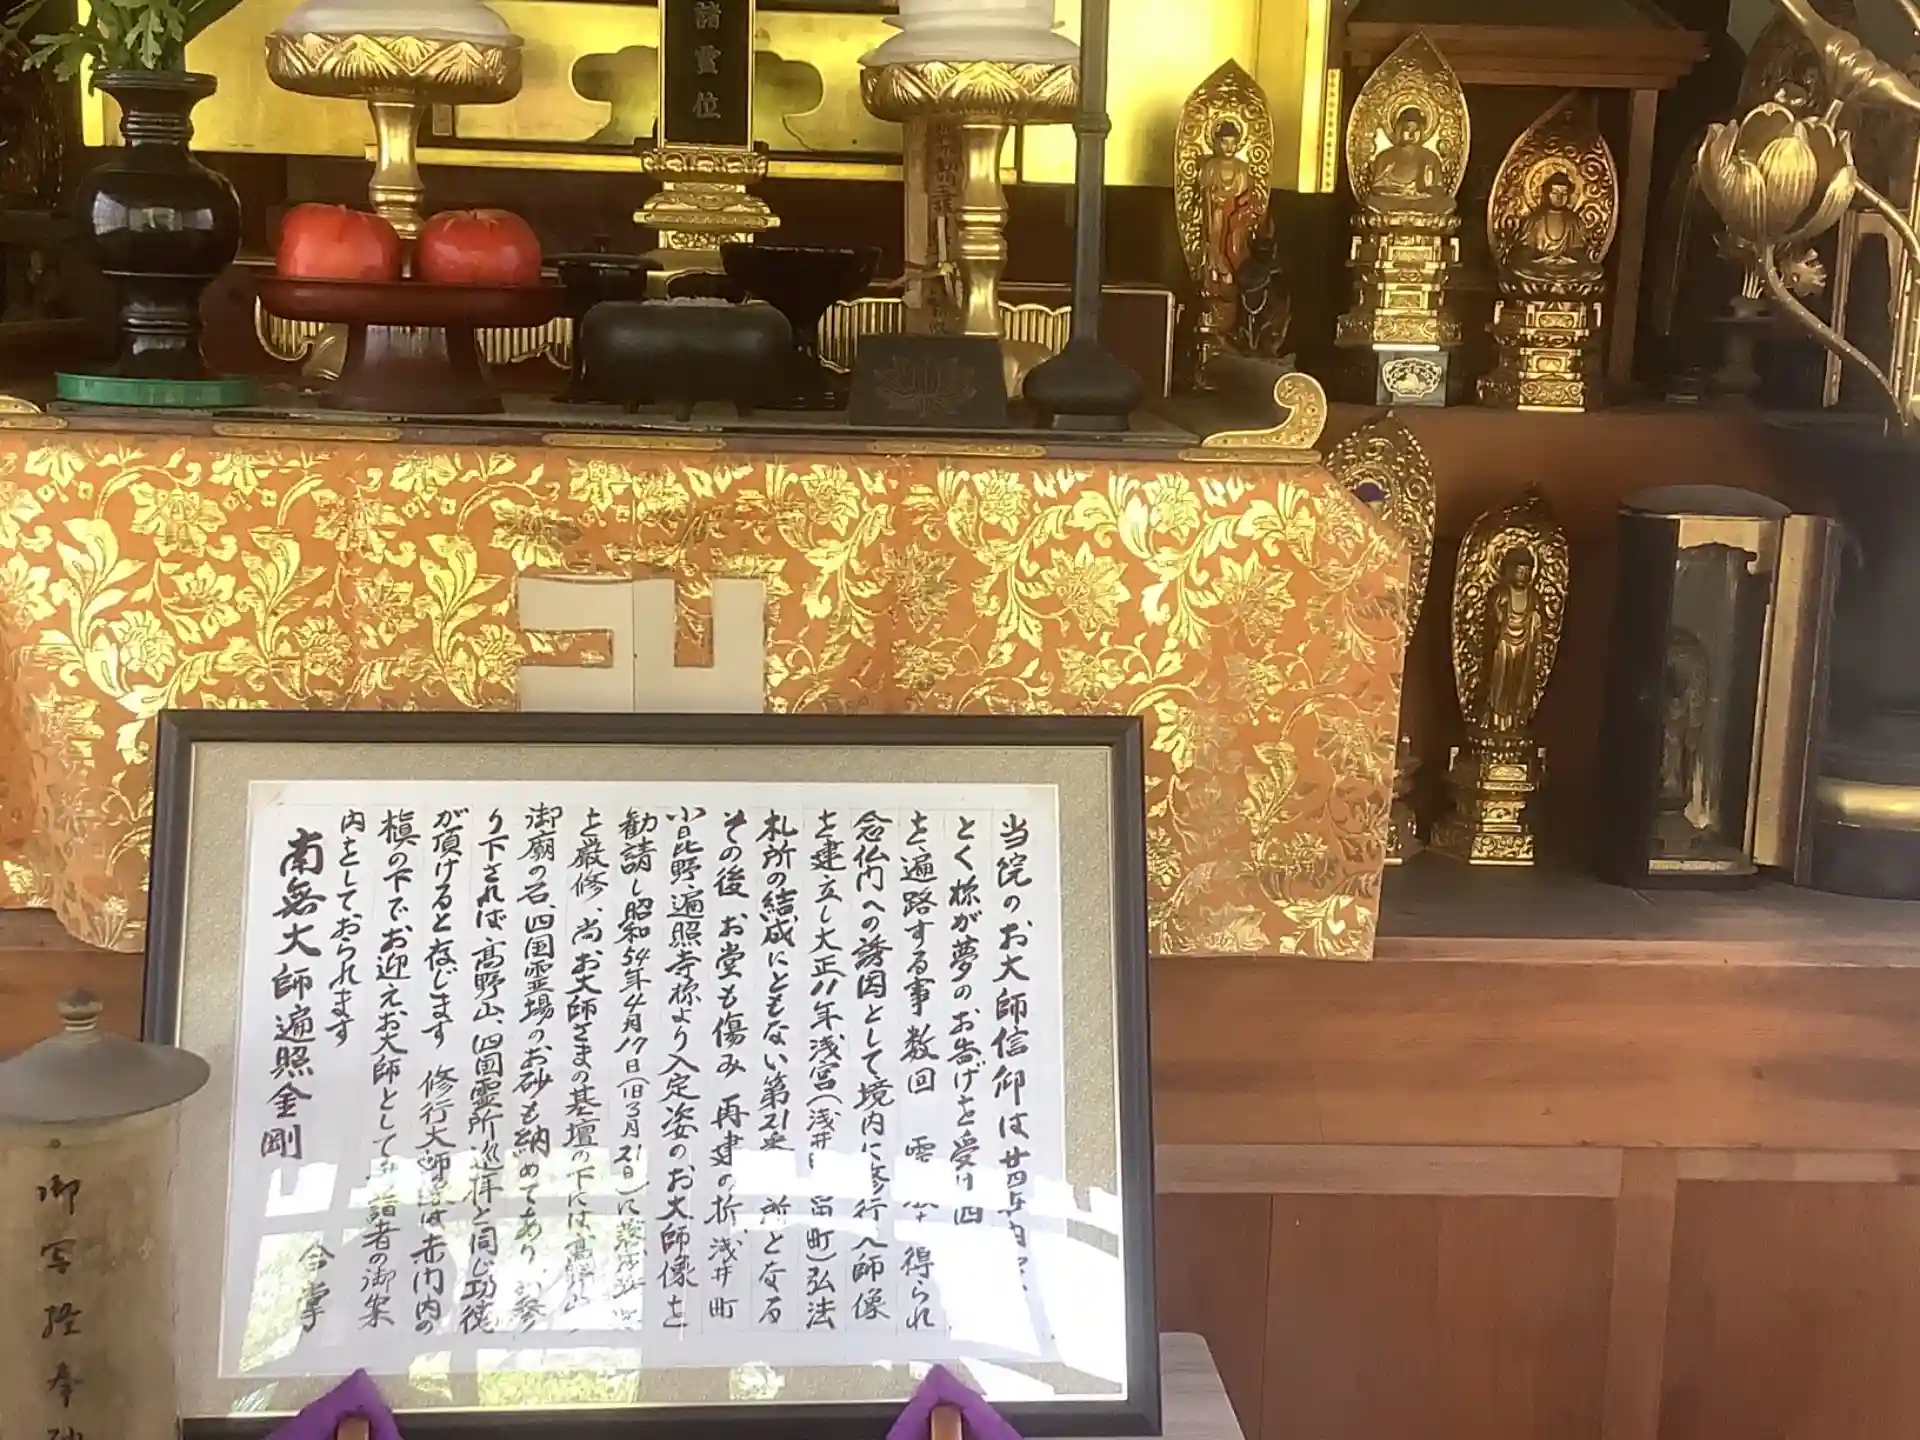 諸霊位
当院のお大師信仰は廿四
とく様が夢のお告げを受け四
を、遍路する事数回 得られ
念仏門への誘因として境内に修行大師像
を建立し大正11年浅宮(浅井 留町)弘法
札所の結成にともない第21番 所となる
その後お堂も傷み再建の折、浅井町
小日比野、遍照寺様より入定姿のお大師像を
勧請し昭和54年4月17日(旧3月21日)に
を厳修、尚お大師さまの基壇の下には、高野山
御廟の石、四国霊場のお砂も納めてあり、お参
り下されば高野山、四国霊所巡拝と同じ功徳
が頂けると存じます 修行大師 は赤門内の
槇の下でお迎えお大師として 詣者の御案
内をしておられます
南無大師遍照金剛
合掌
御写経奉